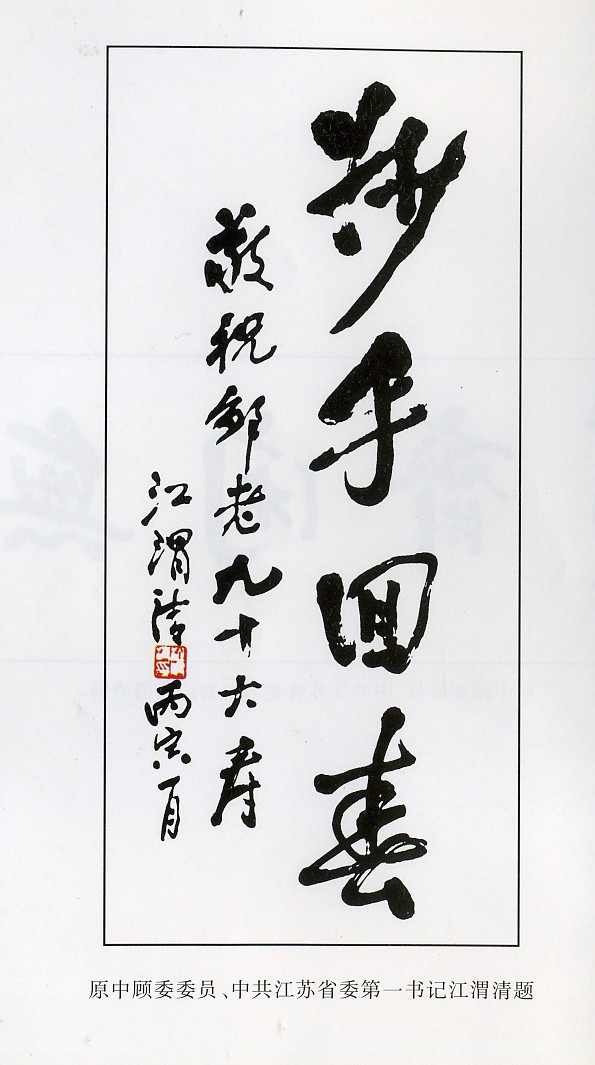 妙手回春
敬祝邹老九十大寿
江渭清 丙寅一月
原中顾委委员、中共江苏省委第一书记江渭清题